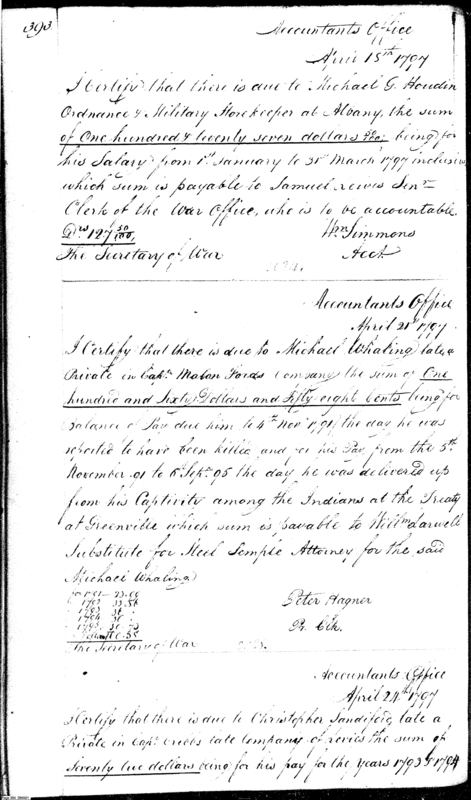 393.
Accountants Office
April 15th 1797
I Certify that there is due to Michael G. Houdin
Ordnance & Military Storekeeper at Albany, the sum
of One hundred & twenty seven dollars being for
his Salary from 1st January to 31st March 1797 inclusive
which sum is payable to Samuel Lewis Senr
Clerk of the War Office, who is to be accountable.
Drs 127 50/100
Wm Simmons
The Secretary of War
Acct
Accountants Office
April 21st 1797
I Certify that there is due to Michael Whaling late a
Private in Capt. Mahlon Fords Company the sum of One
hundred and Sixty Dollars and fifty eight Cents being for
balance of Pay due him to 4th Novr 1791 the day he was
reported to have been killed and for his Pay from the 5th
November 91 to Sept. 95 the day he was delivered up
from his Captivity among the Indians at the Treaty
at Greenville which sum is payable to Willm
Substitute for Steel Semple Attorney for the said
Michael Whaling
Peter Hagner
P. Clk.
The Secretary of War
Accountants Office
April 24th 1797
I Certify that there is due to Christopher Sandiford late a
Private in Capt. Cribbs late Company of Levies the sum of
Seventy two dollars being for his pay for the years 1793 & 1794